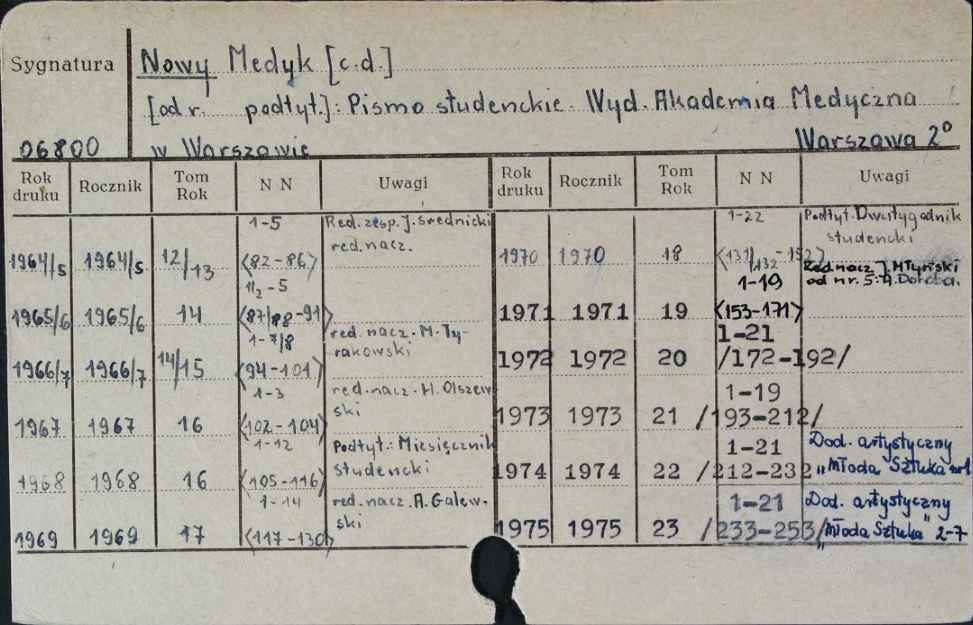 Sygnatura
Nowy Medyk [c.d.]
[od r. podtyt.]: Pismo studenckie. Wyd. Akademia Medyczna
06800 w Warszawie Warszawa 2°
Rok druku Rocznik Tom Rok N N Uwagi Rok druku Rocznik Tom Rok N N Uwagi
1964/5 1964/5 12/13 1-5 <82-86> Red. zesp. J. Średnicki red. nacz.
1965/6 1965/6 14 1/2-5 <87/88-91>
1966/7 1966/7 14/15 1-7/8 <94-101> red. nacz. M. Tyrakowski
1967 1967 16 1-3 <102-104> red. nacz. H. Olszewski
1968 1968 16 1-12 <105-116> Podtyt.: Miesięcznik studencki
1969 1969 17 1-14 <117-130> red. nacz. A. Galewski
1970 1970 18 1-22 <131/132-152> Podtyt. Dwutygodnik studencki
Red. nacz. J. Młyński
od nr. 5: A. Doroba.
1971 1971 19 1-19 <153-171>
1972 1972 20 1-21 /172-192/
1973 1973 21 1-19 /193-212/
1974 1974 22 1-21 /212-232 Dod. artystyczny „Młoda Sztuka" nr 1
1975 1975 23 1-21 /233-253/ Dod. artystyczny „Młoda Sztuka" 2-7